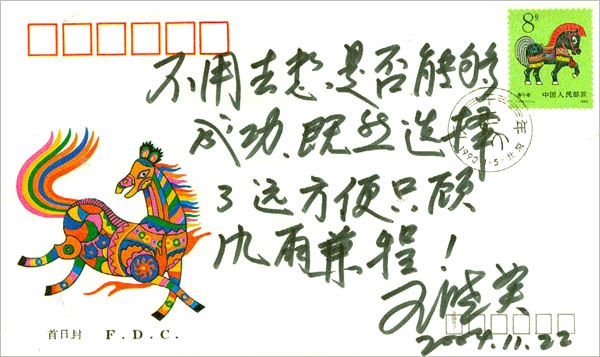 8分
庚午年 中国人民邮政
年
1990.1.5·北京
不用去想是否能够
成功、既然选择
了远方便只顾
风雨兼程！
2004.11.22
首日封 F.D.C.